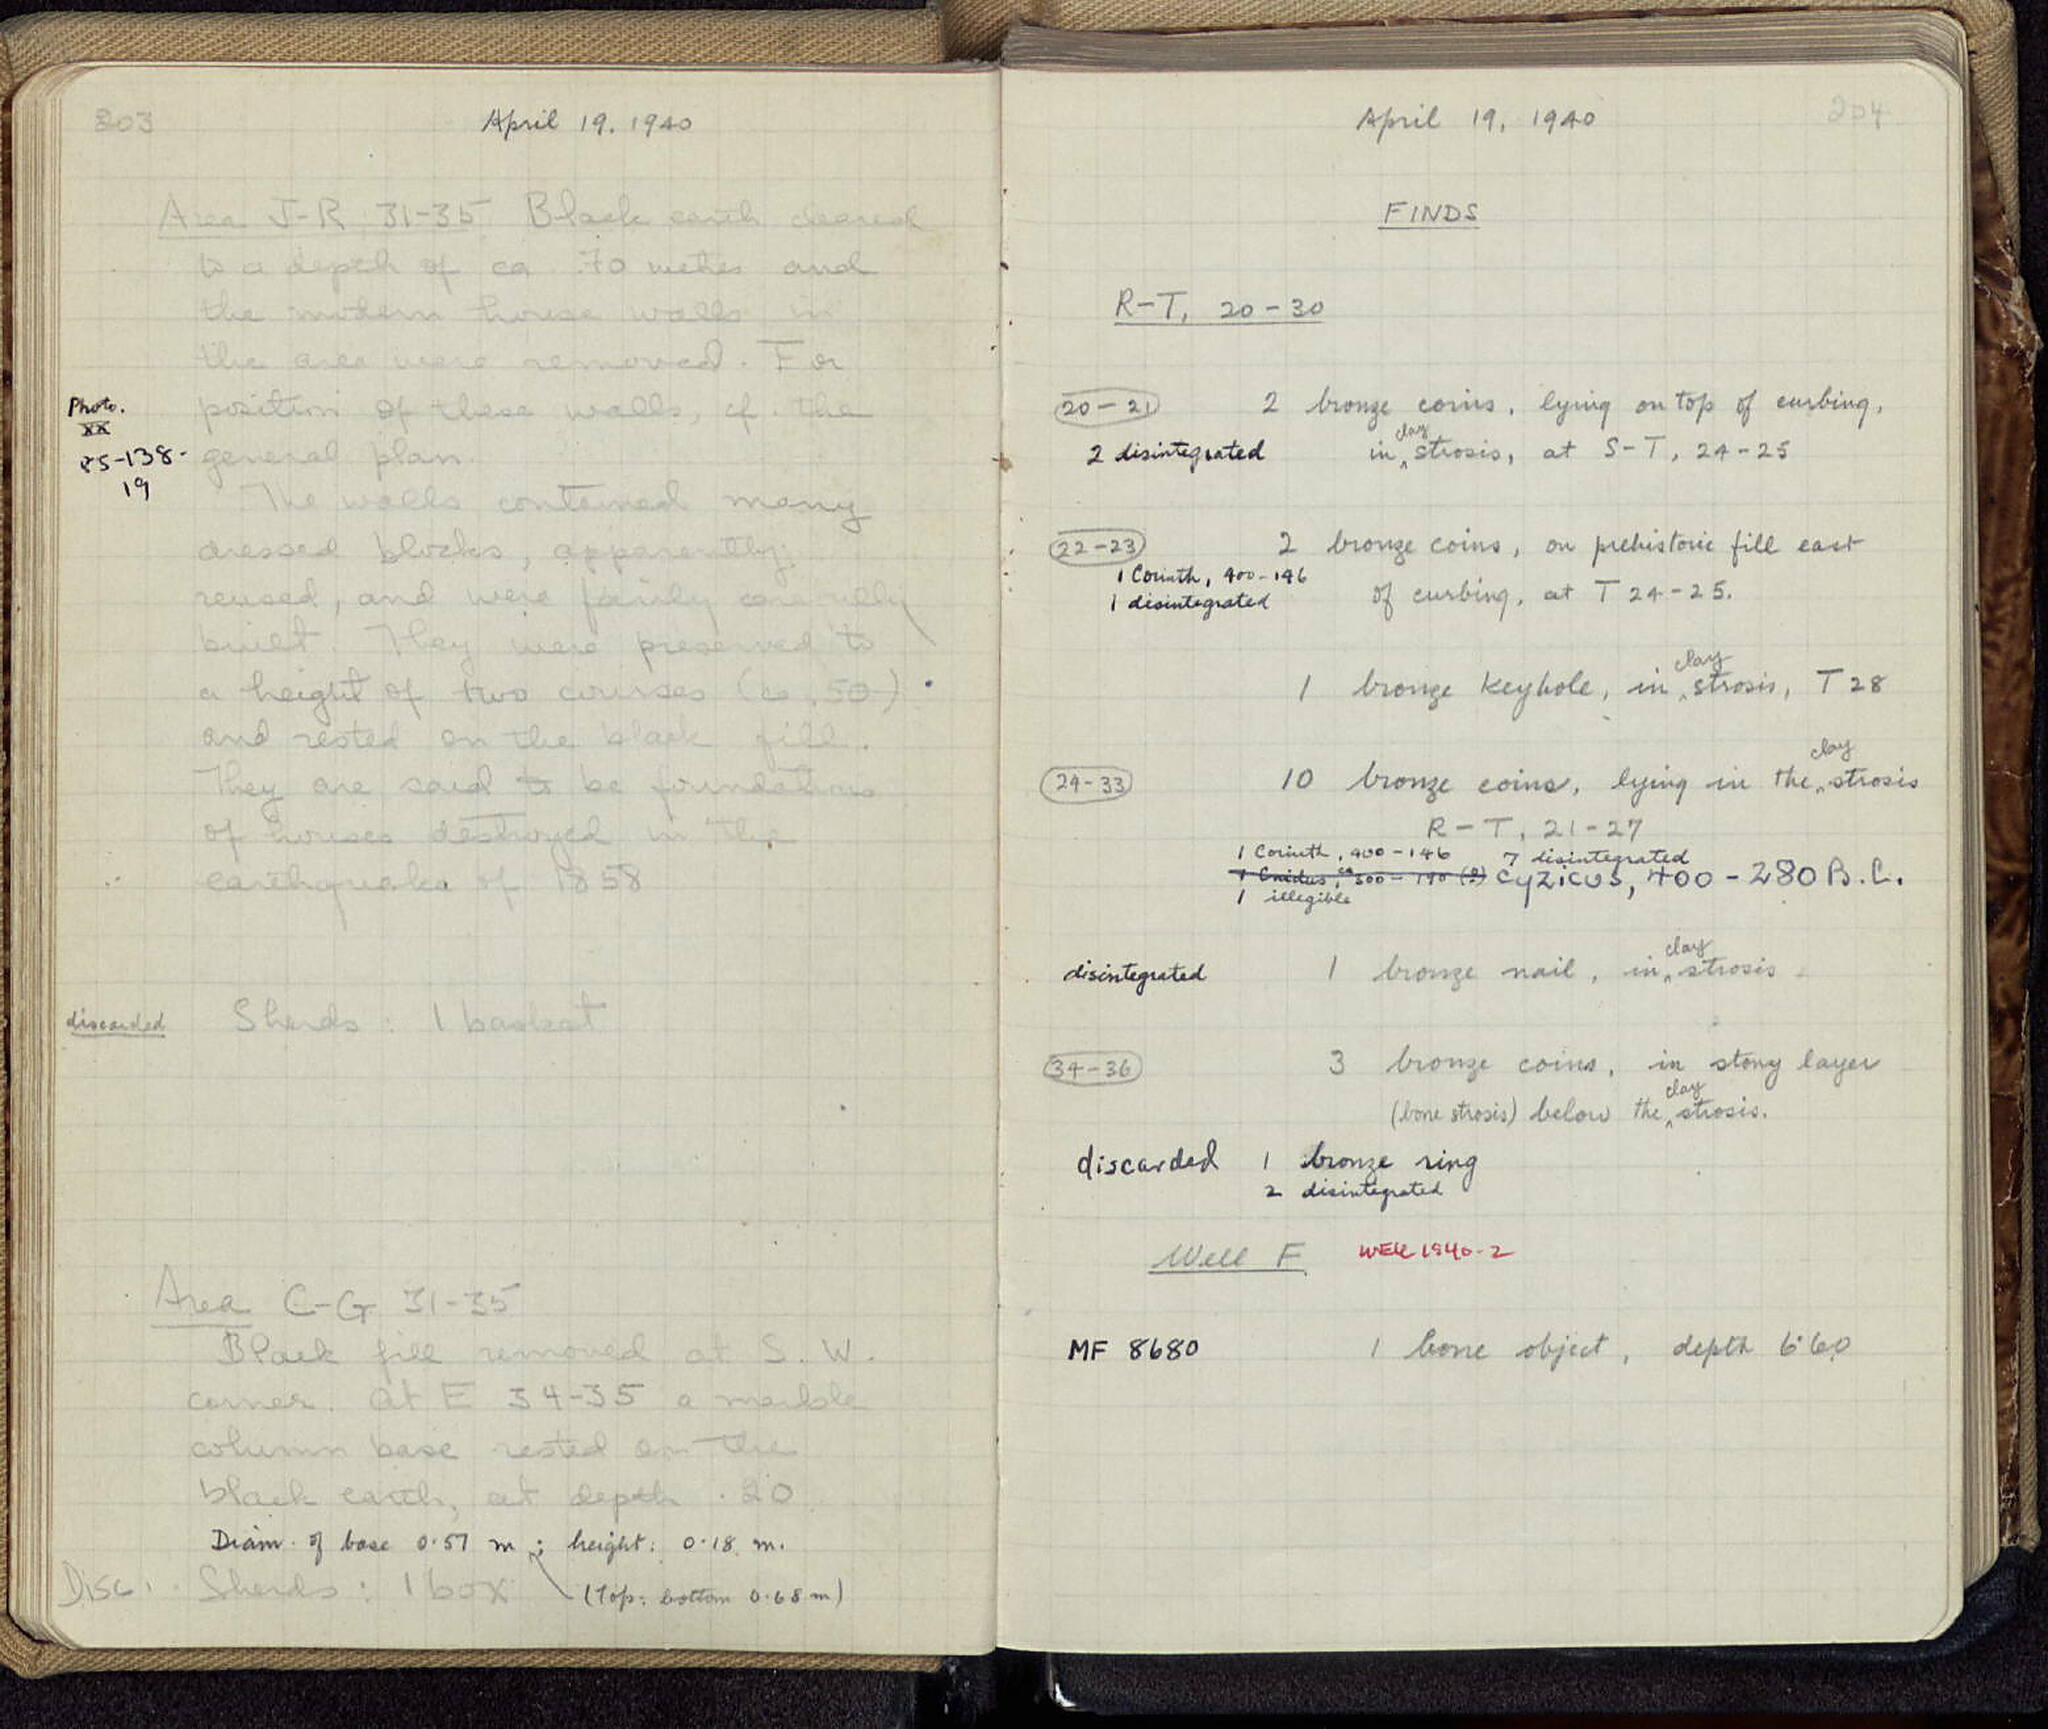 203
April 19, 1940
Area J-R 31-35 Black earth cleared
to a depth of ca .70 metres and
the modern house walls in
the area were removed. For
Photo.
XX
position of these walls, cf. the
85-138-
19
general plan.
The walls contained many
dressed blocks, apparently
reused, and were fairly carefully
built. They were preserved to
a height of two courses (ca .50)
and rested on the black fill.
They are said to be foundations
of houses destroyed in the
earthquake of 1858
discarded Sherds: 1 basket
Area C-G 31-35
Black fill removed at S. W.
corner. At E 34-35 a marble
column base rested on the
black earth, at depth .20
Diam. of base 0.57 m ; height: 0.18 m.
Disc. Sherds: 1 box (Top: bottom 0.68 m)
April 19, 1940
204
FINDS
R-T, 20-30
20-21 2 bronze coins, lying on top of curbing,
2 disintegrated in clay strosis, at S-T, 24-25
22-23 2 bronze coins, on prehistoric fill east
1 Corinth, 400-146
1 disintegrated of curbing, at T 24-25.
1 bronze keyhole, in clay strosis, T 28
24-33 10 bronze coins, lying in the clay strosis
R-T, 21-27
1 Corinth, 400-146 7 disintegrated
1 Cnidus, ca 300-190 (?) CYZICUS, 400-280 B.C.
1 illegible
disintegrated 1 bronze nail, in clay strosis
34-36 3 bronze coins, in stony layer
(bone strosis) below the clay strosis.
discarded 1 bronze ring
2 disintegrated
Well F WELL 1940-2
MF 8680 1 bone object, depth 6.60